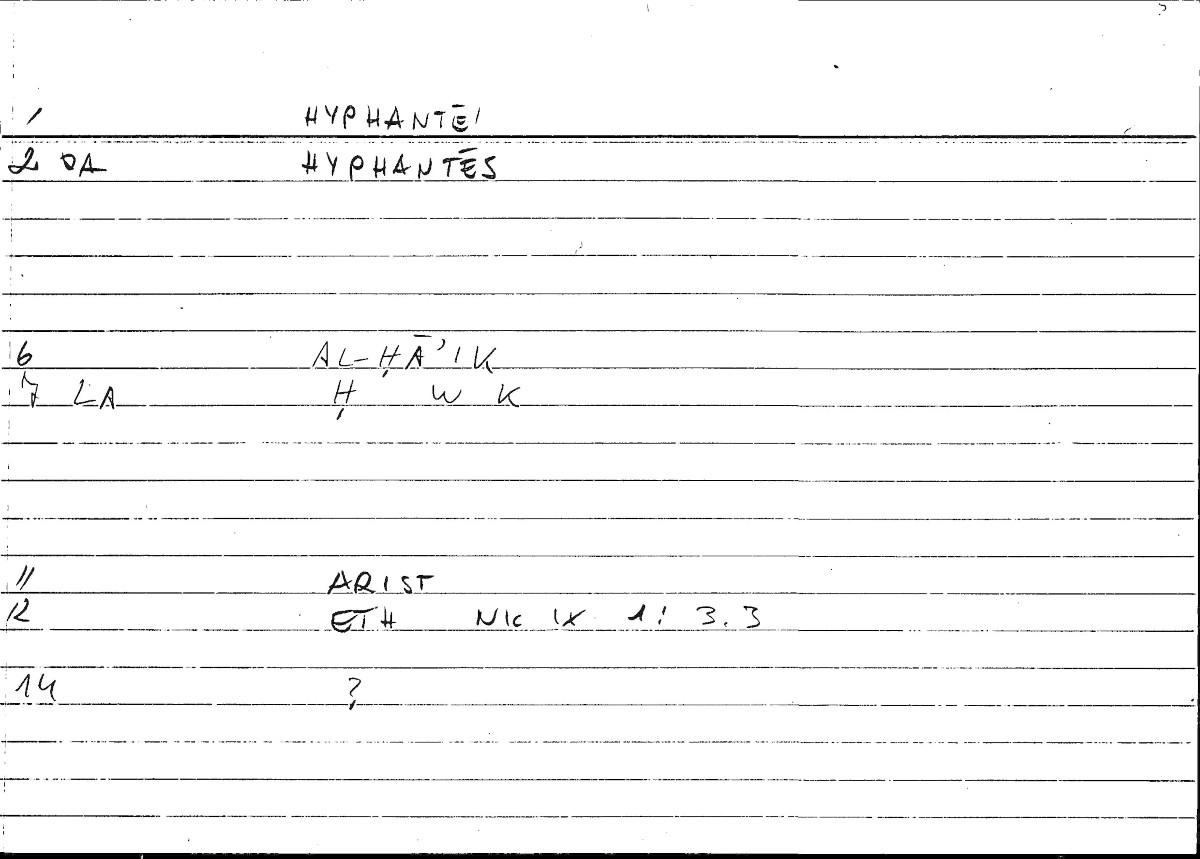 1 HYPHANTĒI
2 DA HYPHANTĒS
6 AL-ḤĀʾIK
7 LA Ḥ W K
11 ARIST
12 ETH NIC IX 1! 3.3
14 ?